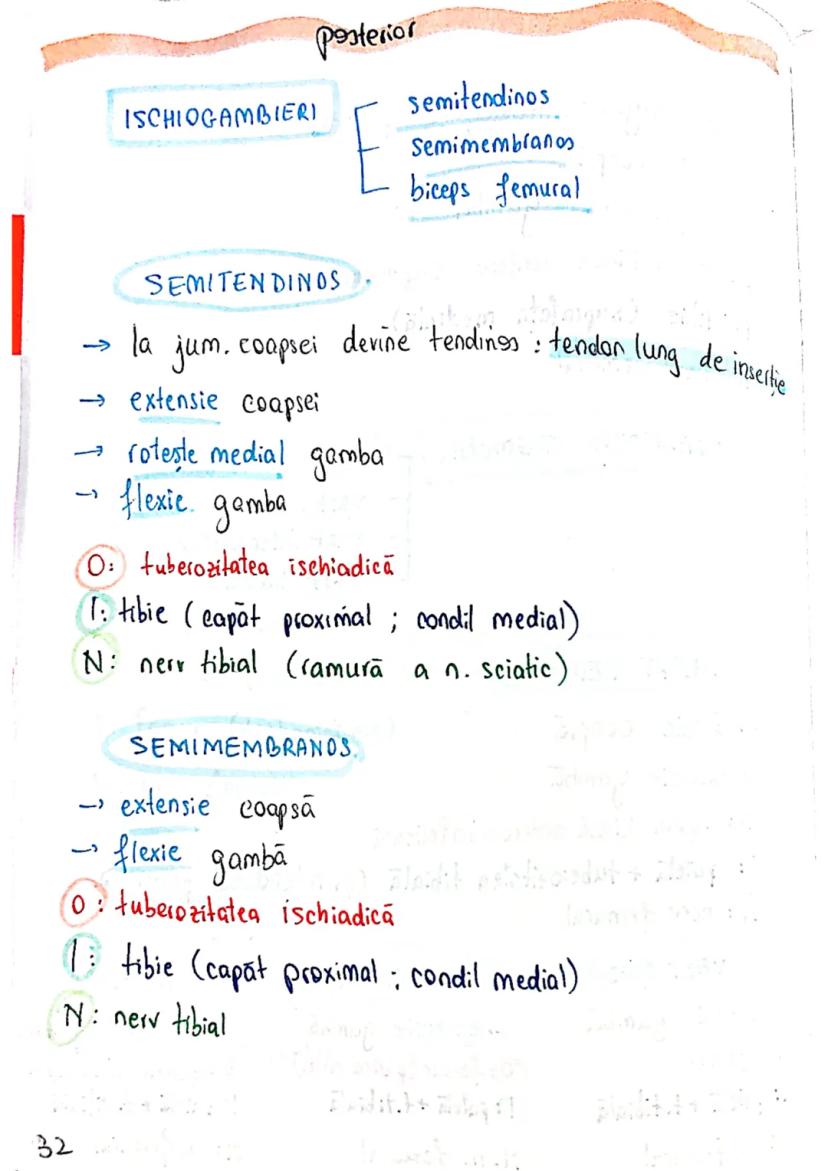 posterior
ISCHIOGAMBIERI
semitendinos
semimembranos
biceps femural
SEMITENDINOS
→ la jum. coapsei devine tendinos : tendon lung de inserție
→ extensie coapsei
→ rotește medial gamba
→ flexie gamba
O: tuberozitatea ischiadică
I: tibie (capăt proximal ; condil medial)
N: nerv tibial (ramură a n. sciatic)
SEMIMEMBRANOS
→ extensie coapsă
→ flexie gambă
O: tuberozitatea ischiadică
I: tibie (capăt proximal ; condil medial)
N: nerv tibial
32